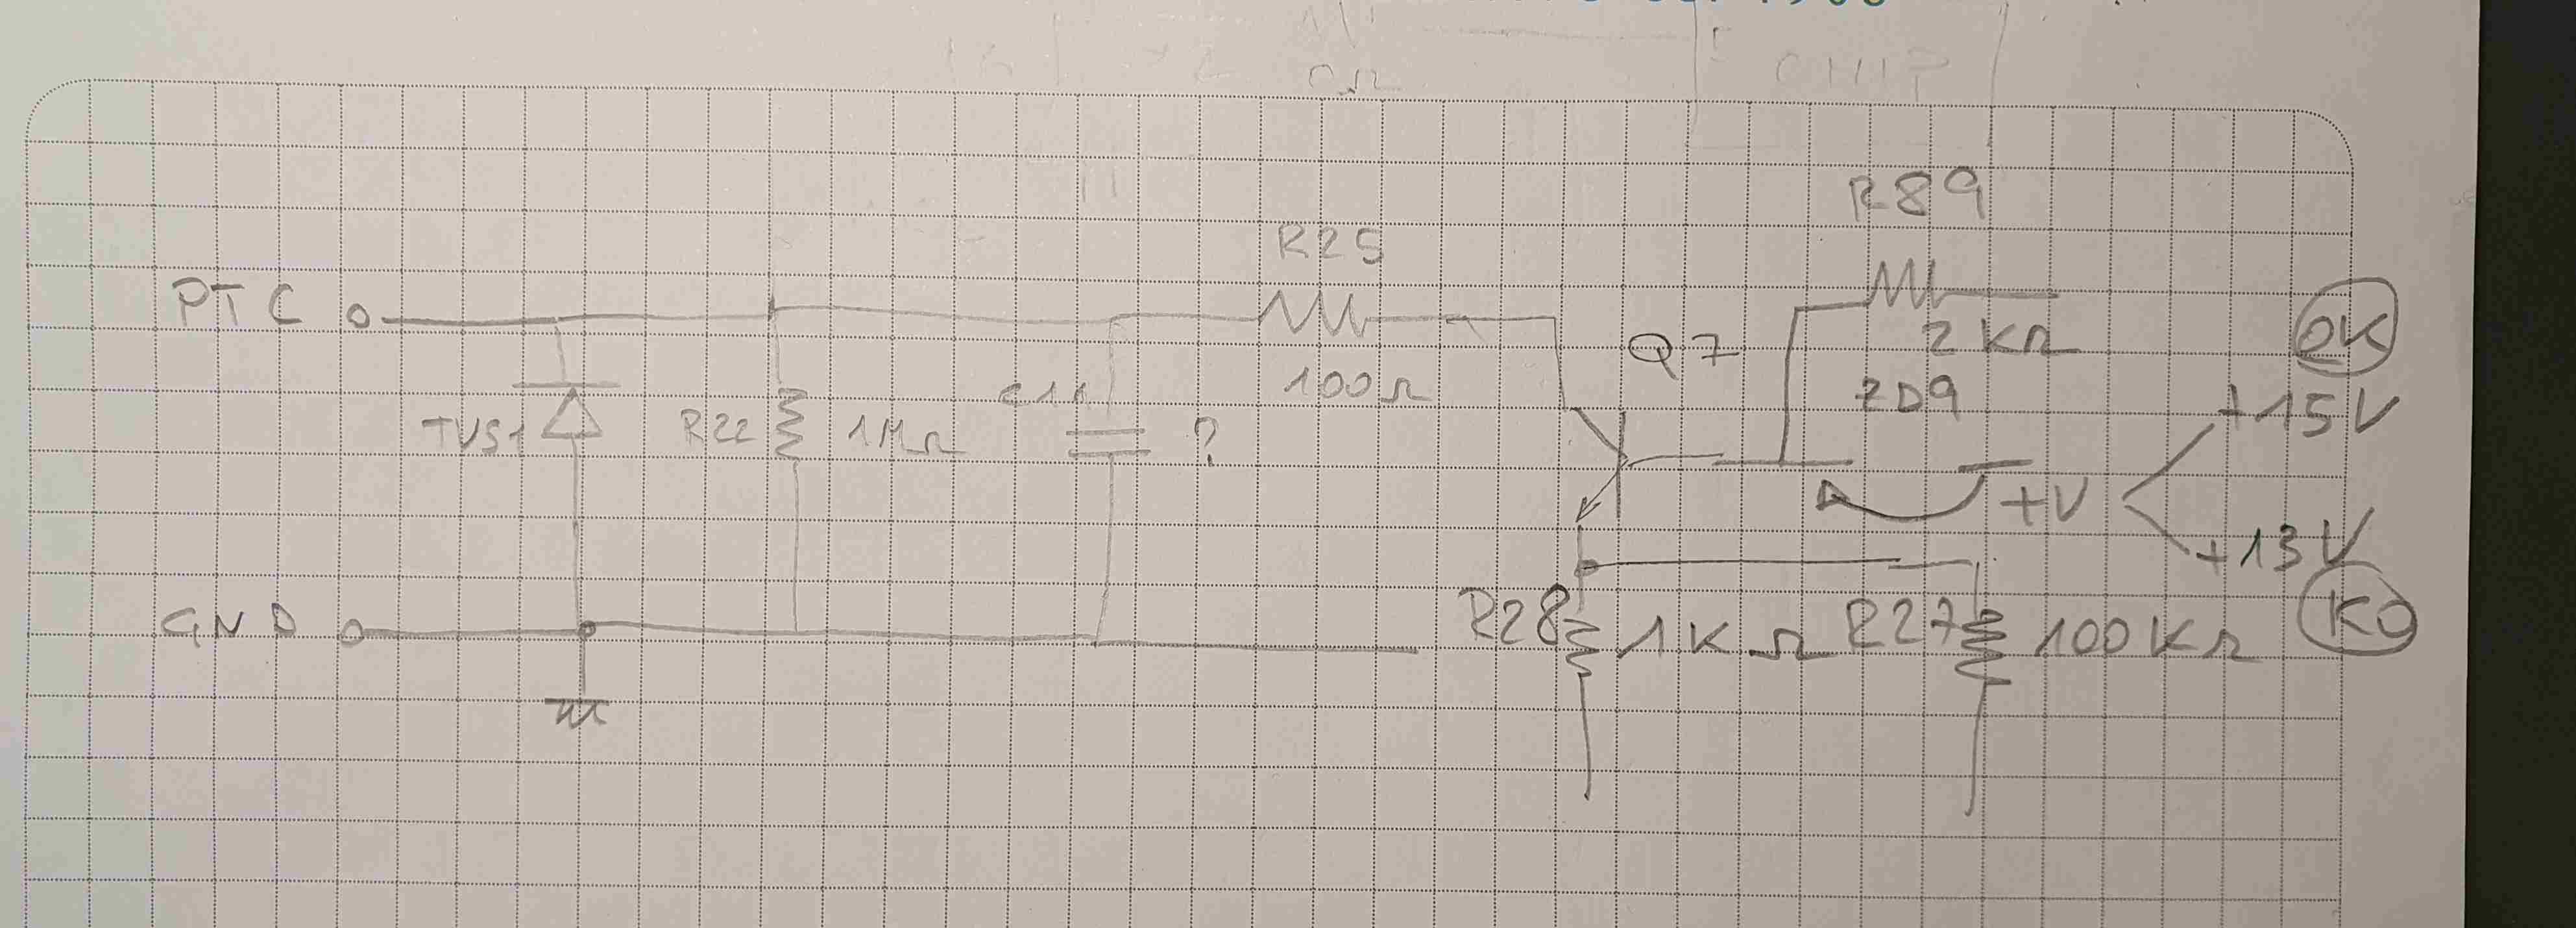 0Ω CHIP
R89
R25
PTC
Q7 2KΩ OK
100Ω ZD9 +15V
TVS1 R22 1MΩ C11 ?
+V
+13V
GND R28 1KΩ R27 100KΩ KO